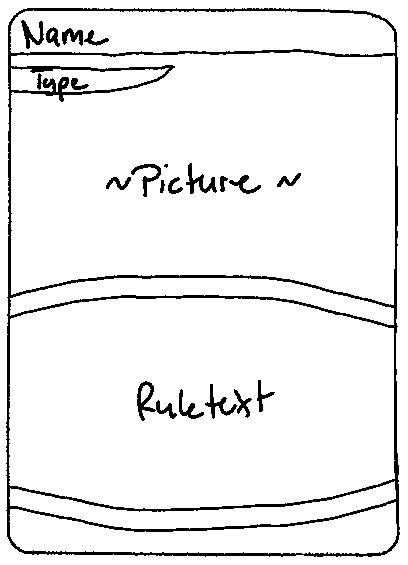 Name
Type
~Picture~
Ruletext